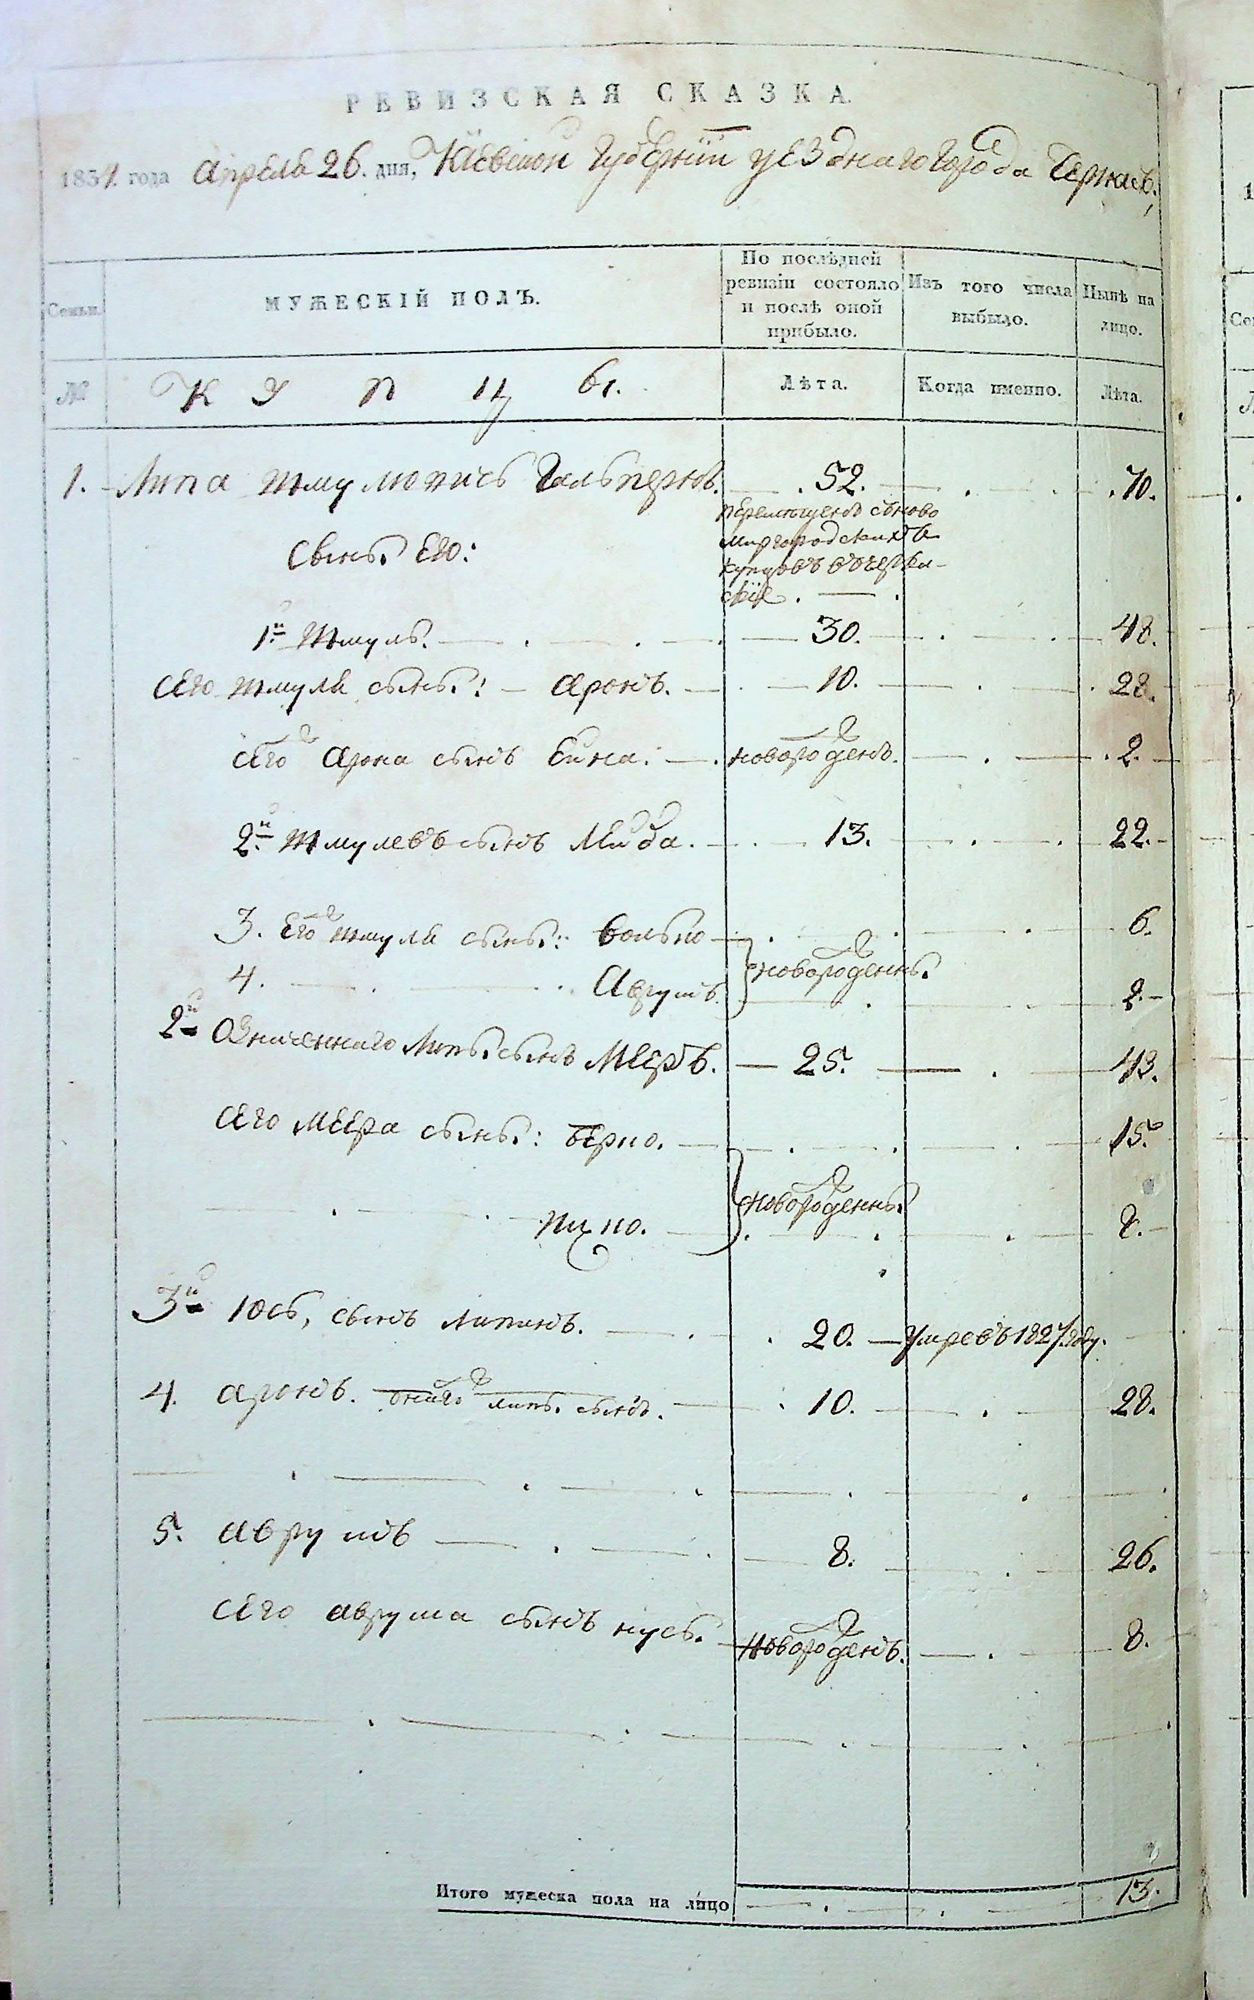 РЕВИЗСКАЯ СКАЗКА.
1834. года Апреля 26. дня, Кіевской Губерніи уезднаго города Черкасъ,
Семьи. МУЖЕСКІЙ ПОЛЪ. По послѣдней ревизіи состояло и послѣ оной прибыло. Изъ того числа выбыло. Нынѣ на лицо.
№ Купцы. Лѣта. Когда именно. Лѣта.
1. Липа Шмулювичь Гальперинъ. 52. 70.
перемещенъ съново
миргородскихъ
купцовъ въ черка-
скіе.
Сыны Его:
1й Шмуль. 30. 48.
Сего Шмуля сыны: Аронъ. 10. 28.
сего Арона сынъ Ейна. новорожденъ. 2.
2й Шмулевъ сынъ Лейба. 13. 22.
3. Его Шмуля сыны: Волько 6.
новорожденны.
4. Аврумъ. 2.
2й Означеннаго Липы сынъ Мееръ. 25. 43.
Сего Меера сыны: Берко. 15.
новорожденны.
Ицко. 2.
3й Юсь, сынъ Липинъ. 20. Умре въ 1827 году.
4. Аронъ. онаго Липы сынъ. 10. 28.
5. Аврумъ 8. 26.
Сего Аврума сынъ Нусь. Новорожденъ. 8.
Итого мужеска пола на лицо 13.